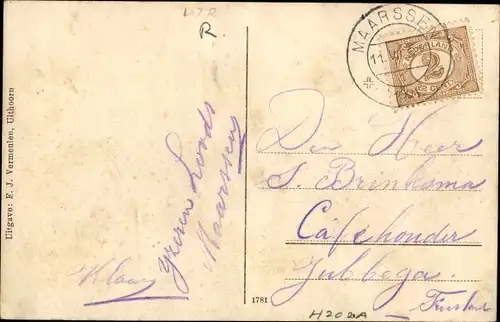 L7R
R.
MAARSSEN
11.
NEDERLAND
2
CENT
Uitgave: F. J. Vermeulen, Uithoorn
Yzeren Loods
Maarssen
Klaas
Den Heer
S. Brinksma
Caféhouder
Jubbega.
Friesland
1781
H202A